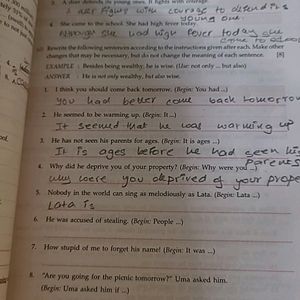 3. A deer defends its young ones. It fights with courage.
A deer fights with courage to defend its
young one.
4. She came to the school. She had high fever today.
Although she had high fever today she
came to school
Rewrite the following sentences according to the instructions given after each. Make other
changes that may be necessary, but do not change the meaning of each sentence. [8]
EXAMPLE : Besides being wealthy; he is wise. (Use: not only ... but also)
ANSWER : He is not only wealthy, but also wise.
1. I think you should come back tomorrow. (Begin: You had ...)
you had better come back tomorrow
2. He seemed to be warming up. (Begin: It ...)
It seemed that he was warming up
3. He has not seen his parents for ages. (Begin: It is ages ...)
It is ages before he had seen his
Parents
4. Why did he deprive you of your property? (Begin: Why were you ...)
why were you deprived of your prope
5. Nobody in the world can sing as melodiously as Lata. (Begin: Lata ...)
Lata is
6. He was accused of stealing. (Begin: People ...)
7. How stupid of me to forget his name! (Begin: It was ...)
8. "Are you going for the picnic tomorrow?" Uma asked him.
(Begin: Uma asked him if ...)